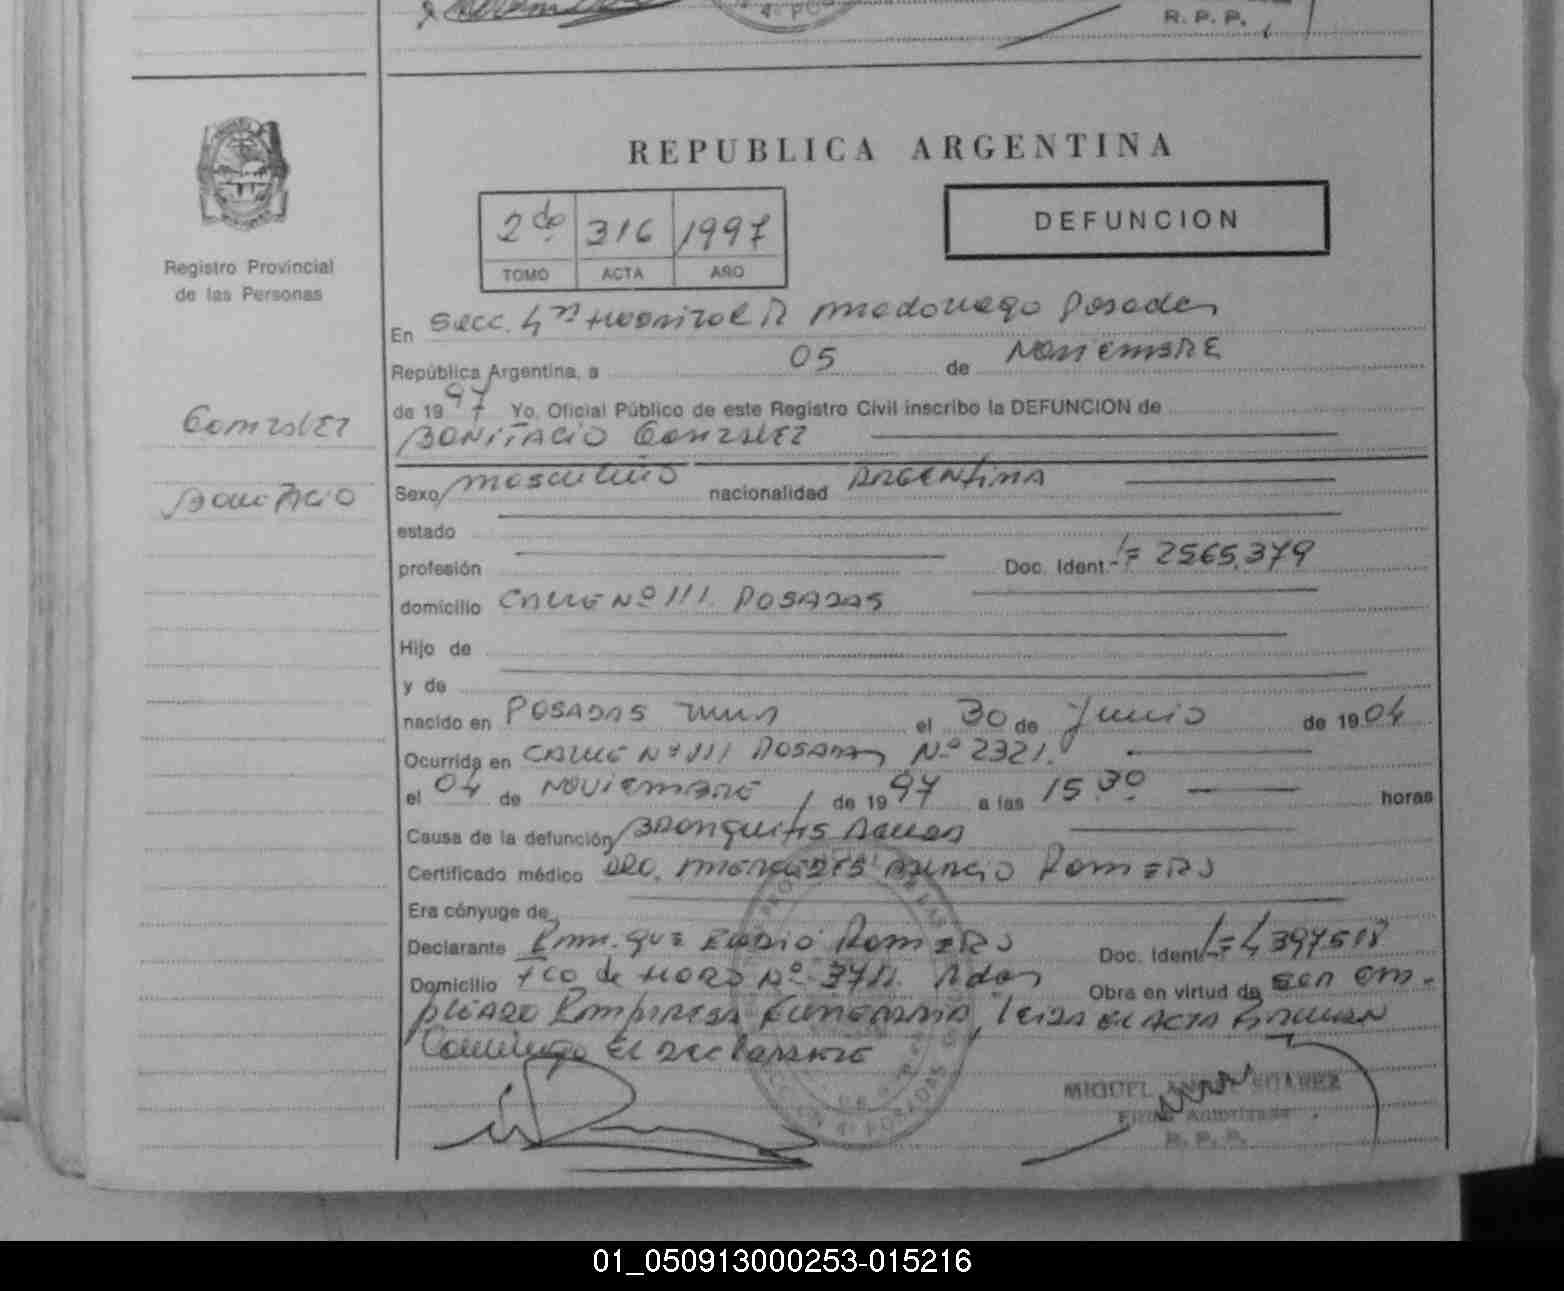 R. P. P.
REPUBLICA ARGENTINA
2do 316 1997
TOMO ACTA AÑO
DEFUNCION
Registro Provincial
de las Personas
En Secc. 4ta Hospital R Madariaga Posadas
República Argentina, a 05 de Noviembre
de 1997 Yo, Oficial Público de este Registro Civil inscribo la DEFUNCION de
BONIFACIO GONZALEZ
GONZALEZ
BONIFACIO
Sexo masculino nacionalidad ARGENTINA
estado
profesión Doc. Ident. 2565.379
domicilio CALLE Nº 111 POSADAS
Hijo de
y de
nacido en POSADAS el 30 de Junio de 1904
Ocurrida en CALLE Nº 111 POSADAS Nº 2321.
el 04 de NOVIEMBRE de 1997 a las 15.30 horas
Causa de la defunción BRONQUITIS
Certificado médico ROMERO
Era cónyuge de
Declarante ROMERO Doc. Ident.
Domicilio Fco de HARO Nº Obra en virtud de ser em-
pleado Empresa Funeraria, leida el acta
Conmigo el declarante
MIGUEL ANGEL SUAREZ
Firma Autorizada
R. P. P.
01_050913000253-015216